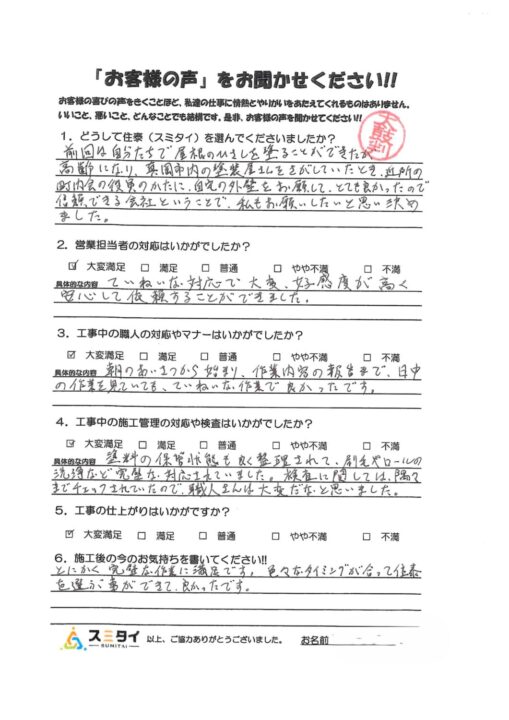 「お客様の声」をお聞かせください!!
お客様の喜びの声をきくことほど、私達の仕事に情熱とやりがいをあたえてくれるものはありません。
いいこと、悪いこと、どんなことでも結構です。是非、お客様の声を聞かせてください!!
太鼓判
1. どうして住泰（スミタイ）を選んでくださいましたか？
前回は自分たちで屋根のひさしを塗ることができたが
高齢になり、真岡市内の塗装屋さんをさがしていたとき、近所の
町内会の役員のかたに、自宅の外壁をお願して、とても良かったので
信頼できる会社ということで、私もお願いしたいと思い決め
ました。
2. 営業担当者の対応はいかがでしたか？
☑ 大変満足 □ 満足 □ 普通 □ やや不満 □ 不満
具体的な内容 ていねいな対応で大変、好感度が高く
安心して依頼することができました。
3. 工事中の職人の対応やマナーはいかがでしたか？
☑ 大変満足 □ 満足 □ 普通 □ やや不満 □ 不満
具体的な内容 朝のあいさつから始まり、作業内容の報告まで、日中
の作業を見ていても、ていねいな作業で良かったです。
4. 工事中の施工管理の対応や検査はいかがでしたか？
☑ 大変満足 □ 満足 □ 普通 □ やや不満 □ 不満
具体的な内容 塗料の保管状態も良く整理されて、刷毛やロールの
洗浄など完璧な対応されていました。検査に関しては、隅々
までチェックされていたので、職人さんは大変だなと思いました。
5. 工事の仕上がりはいかがですか？
☑ 大変満足 □ 満足 □ 普通 □ やや不満 □ 不満
6. 施工後の今のお気持ちを書いてください!!
とにかく完璧な作業に満足です。色々なタイミングが合って住泰
を選ぶ事ができて、良かったです。
スミタイ
SUMITAI
以上、ご協力ありがとうございました。 お名前